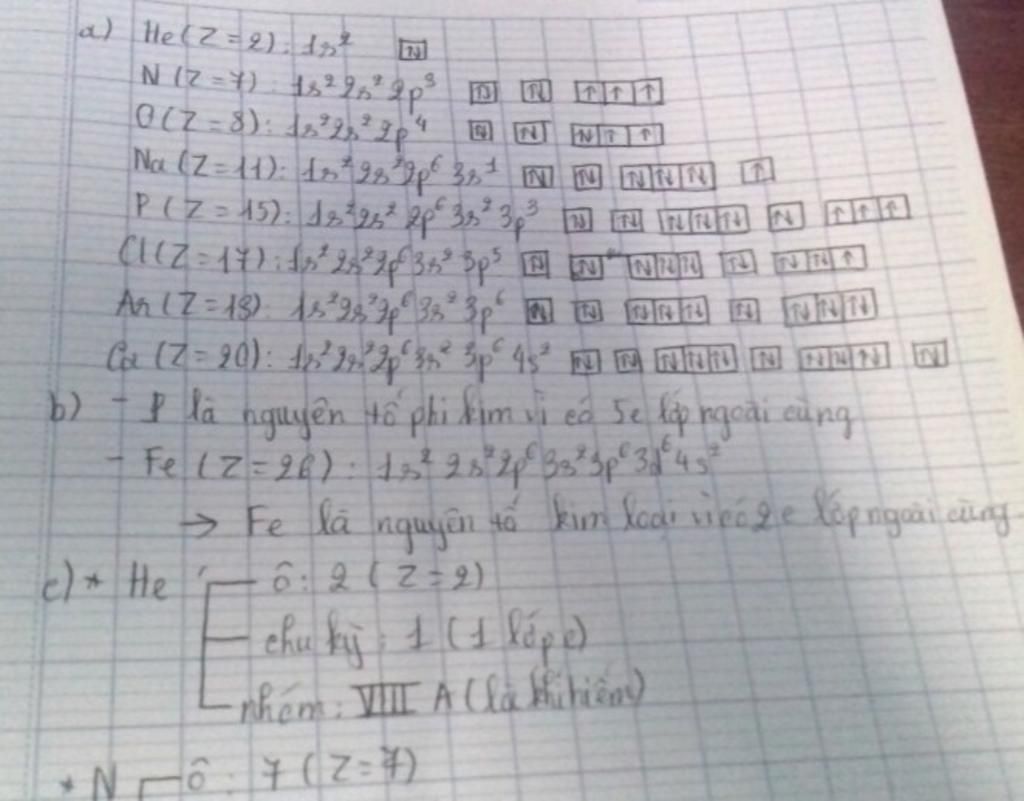 a) He (Z = 2): 1s² ↑↓
N (Z = 7): 1s² 2s² 2p³ ↑↓ ↑↓ ↑ ↑ ↑
O (Z = 8): 1s² 2s² 2p⁴ ↑↓ ↑↓ ↑↓ ↑ ↑
Na (Z = 11): 1s² 2s² 2p⁶ 3s¹ ↑↓ ↑↓ ↑↓ ↑↓ ↑↓ ↑
P (Z = 15): 1s² 2s² 2p⁶ 3s² 3p³ ↑↓ ↑↓ ↑↓ ↑↓ ↑↓ ↑↓ ↑ ↑ ↑
Cl (Z = 17): 1s² 2s² 2p⁶ 3s² 3p⁵ ↑↓ ↑↓ ↑↓ ↑↓ ↑↓ ↑↓ ↑↓ ↑↓ ↑
Ar (Z = 18): 1s² 2s² 2p⁶ 3s² 3p⁶ ↑↓ ↑↓ ↑↓ ↑↓ ↑↓ ↑↓ ↑↓ ↑↓ ↑↓
Ca (Z = 20): 1s² 2s² 2p⁶ 3s² 3p⁶ 4s² ↑↓ ↑↓ ↑↓ ↑↓ ↑↓ ↑↓ ↑↓ ↑↓ ↑↓ ↑↓
b) - P là nguyên tố phi kim vì có 5e lớp ngoài cùng
- Fe (Z = 26): 1s² 2s² 2p⁶ 3s² 3p⁶ 3d⁶ 4s²
→ Fe là nguyên tố kim loại vì có 2e lớp ngoài cùng.
c) * He ô: 2 (Z = 2)
chu kỳ: 1 (1 lớp e)
nhóm: VIII A (là khí hiếm)
* N ô: 7 (Z = 7)